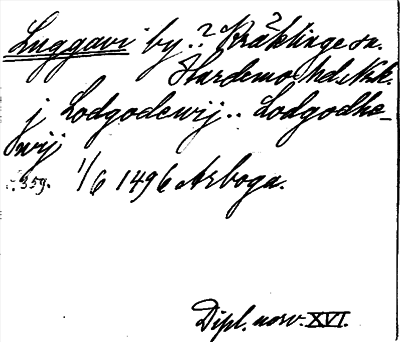 Luggavi by.. ? Kräcklinge sn. ?
Hardemo hd. Nrk.
j Lodgodewij.. Lodgodhe-
wij
s. 359. 1/6 1496 Arboga.
Dipl. norv. XVI.